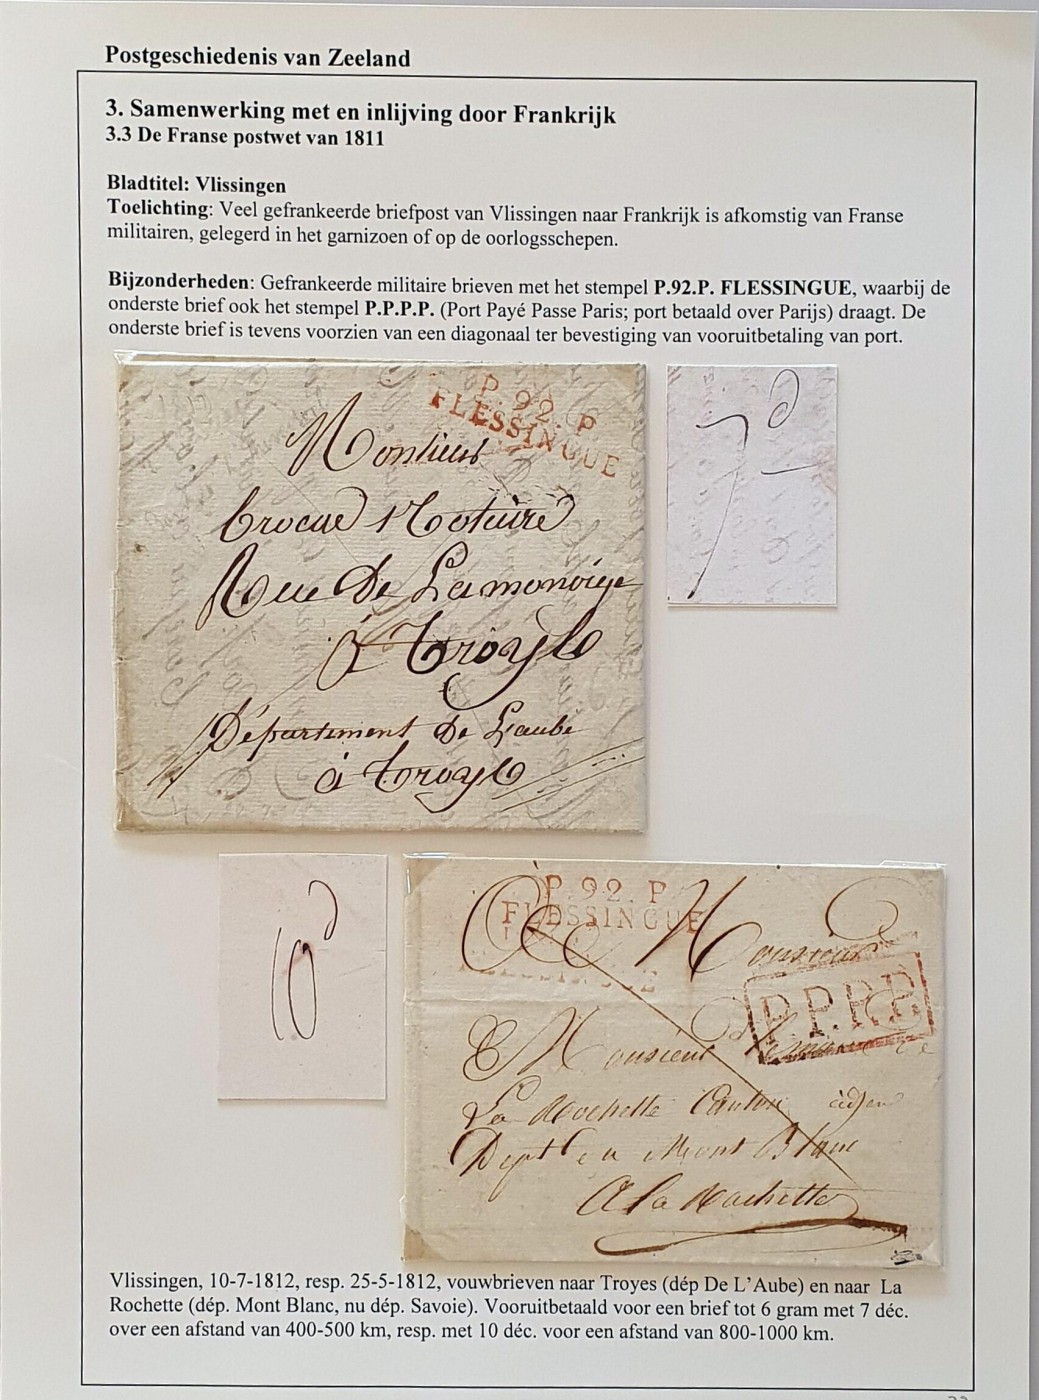 Postgeschiedenis van Zeeland
3. Samenwerking met en inlijving door Frankrijk
3.3 De Franse postwet van 1811
Bladtitel: Vlissingen
Toelichting: Veel gefrankeerde briefpost van Vlissingen naar Frankrijk is afkomstig van Franse
militairen, gelegerd in het garnizoen of op de oorlogsschepen.
Bijzonderheden: Gefrankeerde militaire brieven met het stempel P.92.P. FLESSINGUE, waarbij de
onderste brief ook het stempel P.P.P.P. (Port Payé Passe Paris; port betaald over Parijs) draagt. De
onderste brief is tevens voorzien van een diagonaal ter bevestiging van vooruitbetaling van port.
P. 92. P
FLESSINGUE
Monsieur
Notaire
Rue De Lamonoige
à Troyes
Département De L'aube
à Troyes
7 d
10 d
P. 92. P
FLESSINGUE
Monsieur
P.P.P.P
Monsieur
La Rochette Canton
Dept Mont Blanc
A la Rochette
Vlissingen, 10-7-1812, resp. 25-5-1812, vouwbrieven naar Troyes (dép De L'Aube) en naar La
Rochette (dép. Mont Blanc, nu dép. Savoie). Vooruitbetaald voor een brief tot 6 gram met 7 déc.
over een afstand van 400-500 km, resp. met 10 déc. voor een afstand van 800-1000 km.